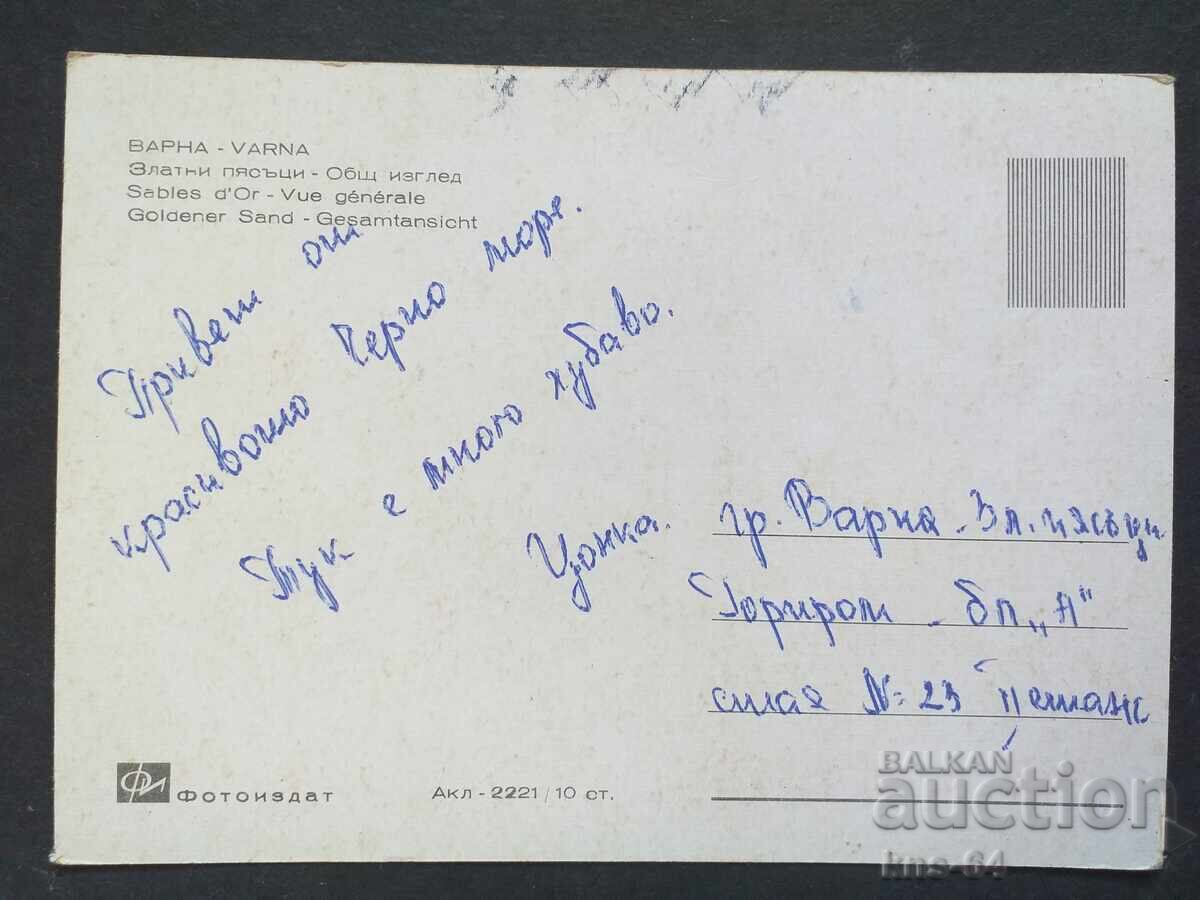 ВАРНА - VARNA
Златни пясъци - Общ изглед
Sables d'Or - Vue générale
Goldener Sand - Gesamtansicht
Привет от
красивото Черно море.
Тук е много хубаво.
Цонка.
гр. Варна - Зл. пясъци
бл „А"
стая №: 23 II етаж
ФИ Фотоиздат
Акл - 2221 / 10 ст.
BALKAN
auction
kns-64